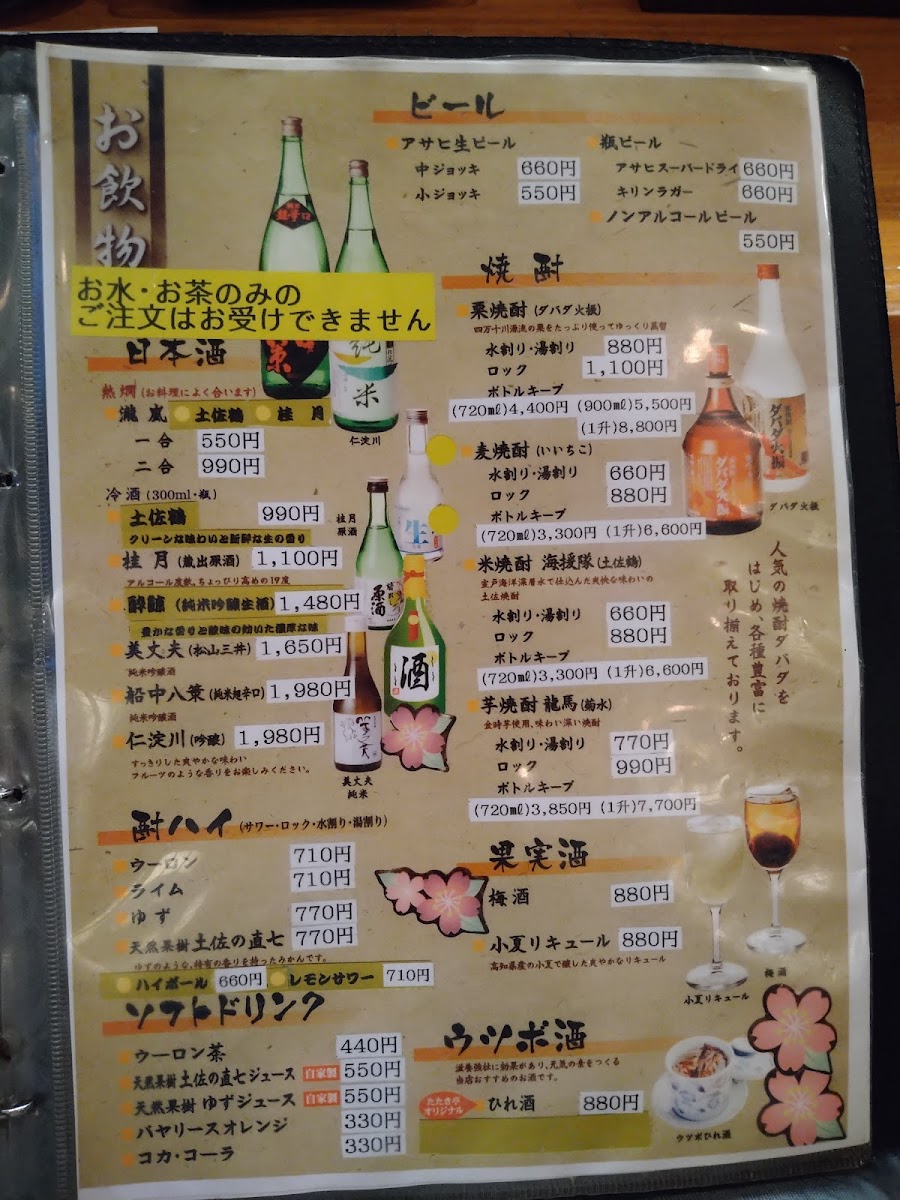 お飲物
お水・お茶のみの
ご注文はお受けできません
ビール
アサヒ生ビール
中ジョッキ 660円
小ジョッキ 550円
瓶ビール
アサヒスーパードライ 660円
キリンラガー 660円
ノンアルコールビール
550円
日本酒
熱燗 (お料理によく合います)
瀧嵐 土佐鶴 桂月
一合 550円
二合 990円
冷酒 (300ml・瓶)
土佐鶴 990円
クリーンな味わいと新鮮な生の香り
桂月 (蔵出原酒) 1,100円
アルコール度数、ちょっぴり高めの19度
酔鯨 (純米吟醸生酒) 1,480円
豊かな香りと酸味の効いた濃厚な味
美丈夫 (松山三井) 1,650円
純米吟醸酒
船中八策 (純米超辛口) 1,980円
純米吟醸酒
仁淀川 (吟醸) 1,980円
すっきりした爽やかな味わい
フルーツのような香りをお楽しみください。
純米
仁淀川
桂月
原酒
生
原酒
酒
美丈夫
美丈夫
純米
焼酎
栗焼酎 (ダバダ火振)
四万十川源流の栗をたっぷり使ってゆっくり蒸留
水割り・湯割り 880円
ロック 1,100円
ボトルキープ
(720㎖)4,400円 (900㎖)5,500円
(1升)8,800円
麦焼酎 (いいちこ)
水割り・湯割り 660円
ロック 880円
ボトルキープ
(720㎖)3,300円 (1升)6,600円
米焼酎 海援隊 (土佐鶴)
室戸海洋深層水で仕込んだ爽快な味わいの
土佐焼酎
水割り・湯割り 660円
ロック 880円
ボトルキープ
(720㎖)3,300円 (1升)6,600円
芋焼酎 龍馬 (菊水)
金時芋使用、味わい深い焼酎
水割り・湯割り 770円
ロック 990円
ボトルキープ
(720㎖)3,850円 (1升)7,700円
ダバダ火振
ダバダ火振
ダバダ火振
人気の焼酎ダバダを
はじめ、各種豊富に
取り揃えております。
酎ハイ (サワー・ロック・水割り・湯割り)
ウーロン 710円
ライム 710円
ゆず 770円
天然果樹 土佐の直七 770円
ゆずのような、特有の香りを持ったみかんです。
ハイボール 660円 レモンサワー 710円
ソフトドリンク
ウーロン茶 440円
天然果樹 土佐の直七ジュース 自家製 550円
天然果樹 ゆずジュース 自家製 550円
バヤリースオレンジ 330円
コカ・コーラ 330円
果実酒
梅酒 880円
小夏リキュール 880円
高知県産の小夏で醸した爽やかなリキュール
小夏リキュール
梅酒
ウツボ酒
滋養強壮に効果があり、元気の素をつくる
当店おすすめのお酒です。
たたき亭
オリジナル ひれ酒 880円
ウツボひれ酒